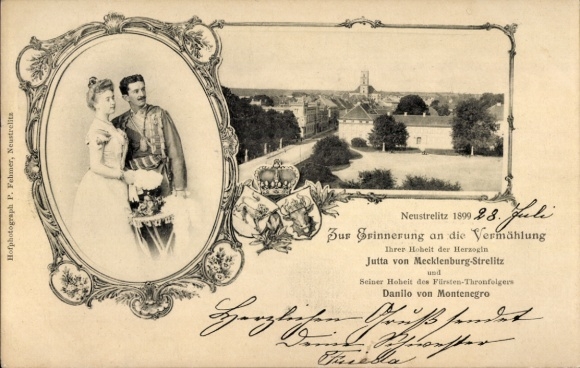 Hofphotograph P. Fehmer, Neustrelitz
Neustrelitz 1899 28. Juli
Zur Erinnerung an die Vermählung
Ihrer Hoheit der Herzogin
Jutta von Mecklenburg-Strelitz
und
Seiner Hoheit des Fürsten-Thronfolgers
Danilo von Montenegro
Herzlichen Gruß sendet
Deine Schwester
Frieda